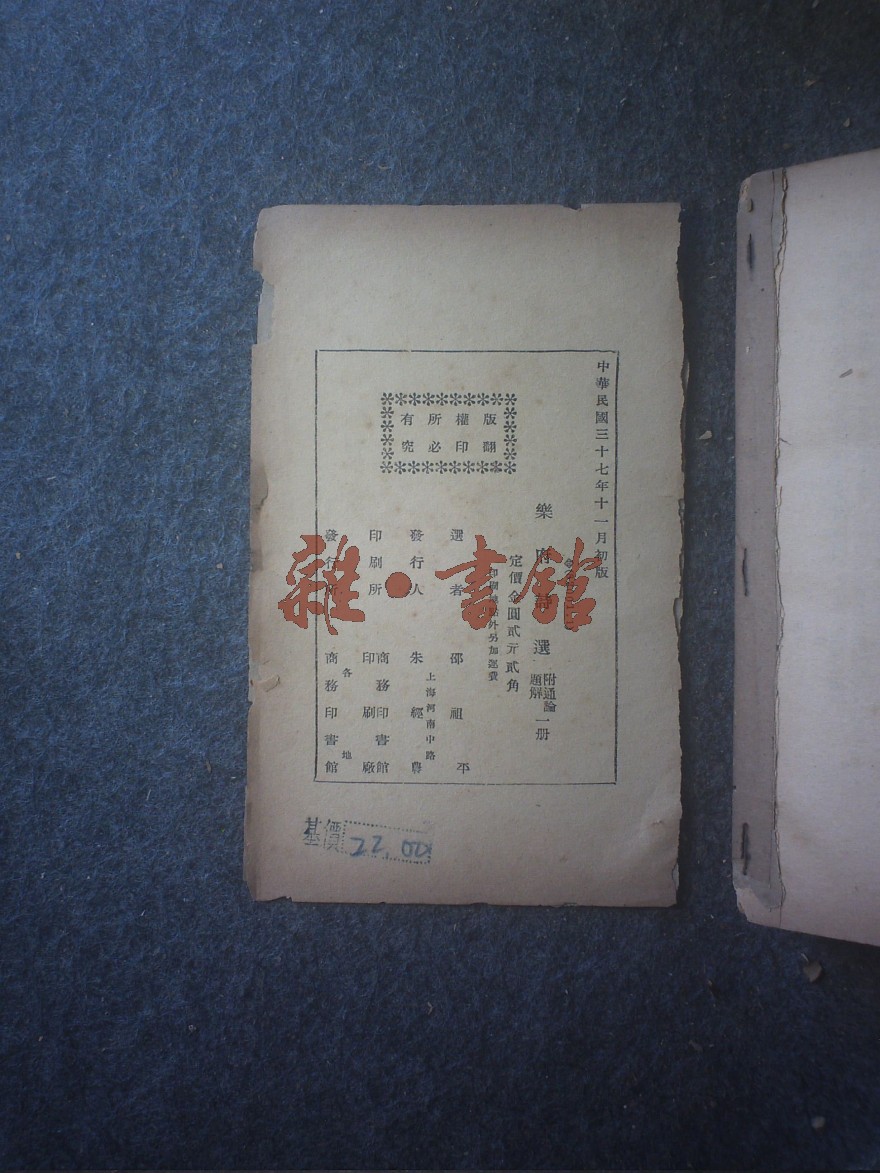 中華民國三十七年十一月初版
樂府詩選 附通論題解 一册
定價金圓貳元貳角
印刷地點外另加運費
選者 邵祖平
發行人 朱經農
上海河南中路
印刷所 商務印書館印刷廠
發行所 商務印書館
各地
版權所有
翻印必究
基價 22.00
雜·書館